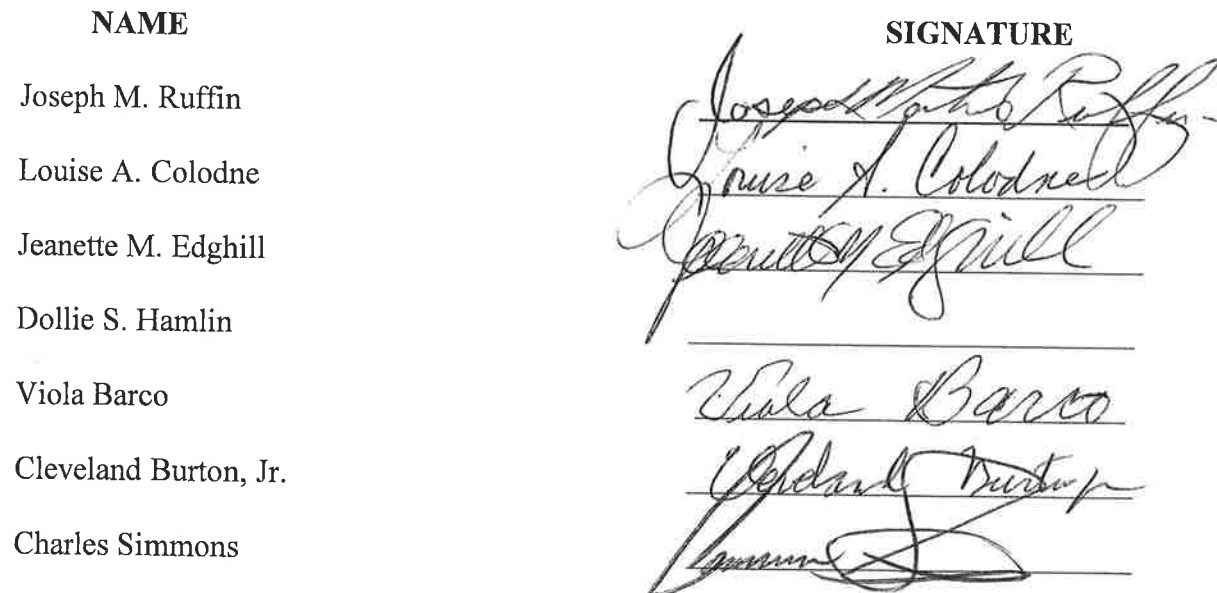 NAME SIGNATURE
Joseph M. Ruffin Joseph Ruffin
Louise A. Colodne Louise A. Colodne
Jeanette M. Edghill Jeanette M Edghill
Dollie S. Hamlin
Viola Barco Viola Barco
Cleveland Burton, Jr. Cleveland Burton Jr
Charles Simmons